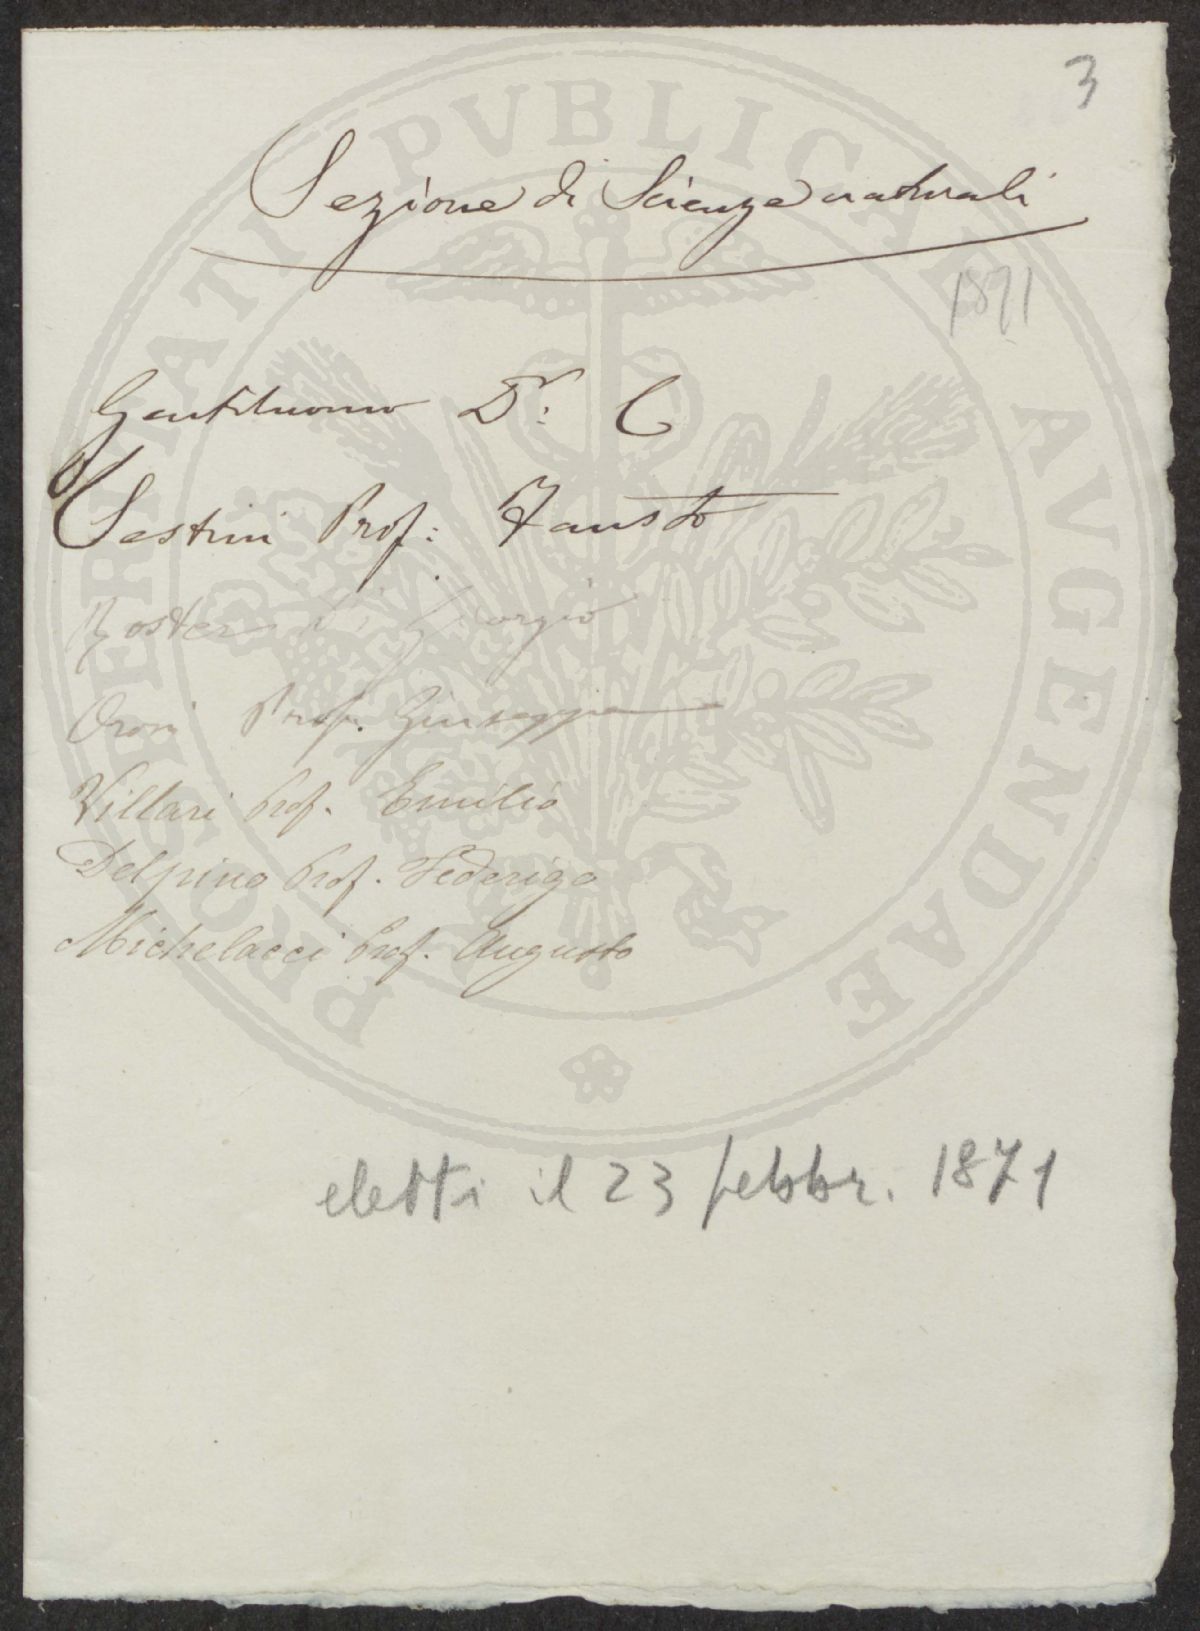 3
Sezione di Scienze naturali
1871
Gentiluomo Dr: C
Sestini Prof: Fausto
Roster Giorgio
Oroni Prof. Giuseppe
Villari Prof. Emilio
Delpino Prof. Federigo
Michelacci Prof. Augusto
eletti il 23 febbr. 1871
PROSPERITATI PVBLICAE AVGENDAE